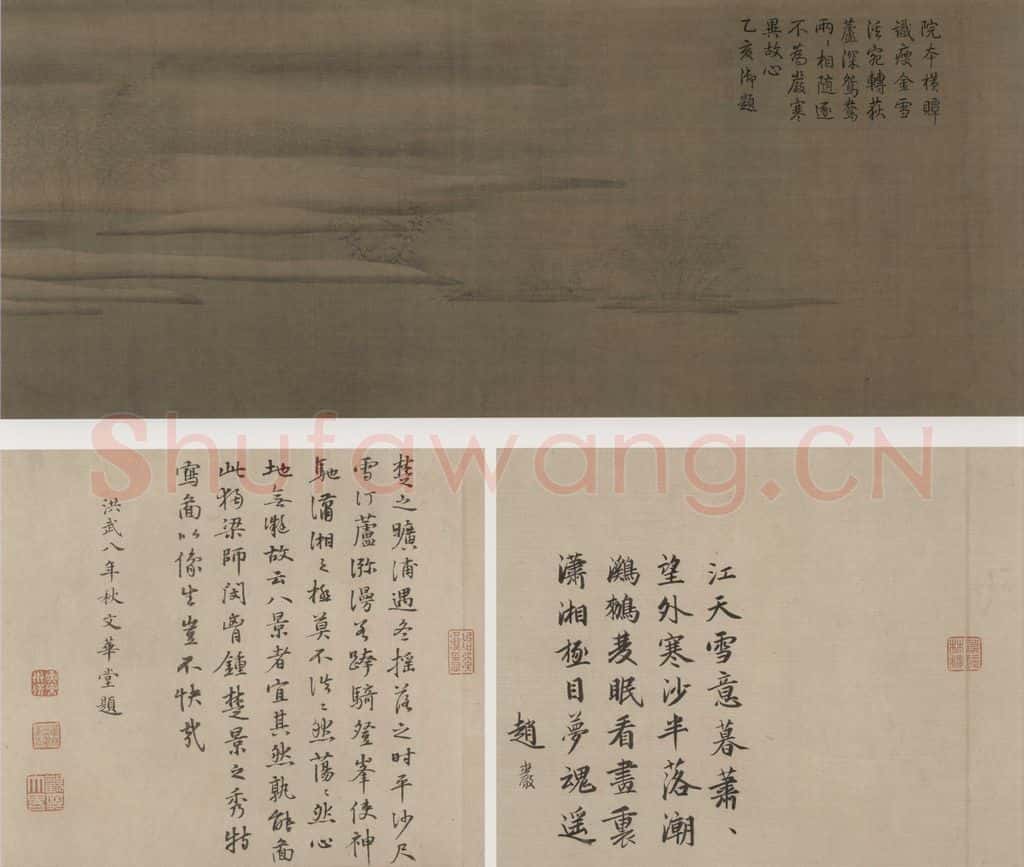 院本橫障
識瘦金雪
汀宛轉荻
蘆深鴛鴦
兩〻相隨逐
不為嚴寒
異故心
乙亥御題
Shufawang.CN
江天雪意暮蕭〻
望外寒沙半落潮
鸂鶒雙眠看畫裏
瀟湘極目夢魂遥
趙巖
楚之曠浦遇冬搖落之時平沙尺
雪汀蘆瀰漫若跨騎登峯使神
馳瀟湘之極莫不浩〻然蕩〻然心
地無礙故云八景者宜其然孰能圖
此獨梁師閔胷鍾楚景之秀特
寫圖以像生豈不快哉
洪武八年秋文華堂題